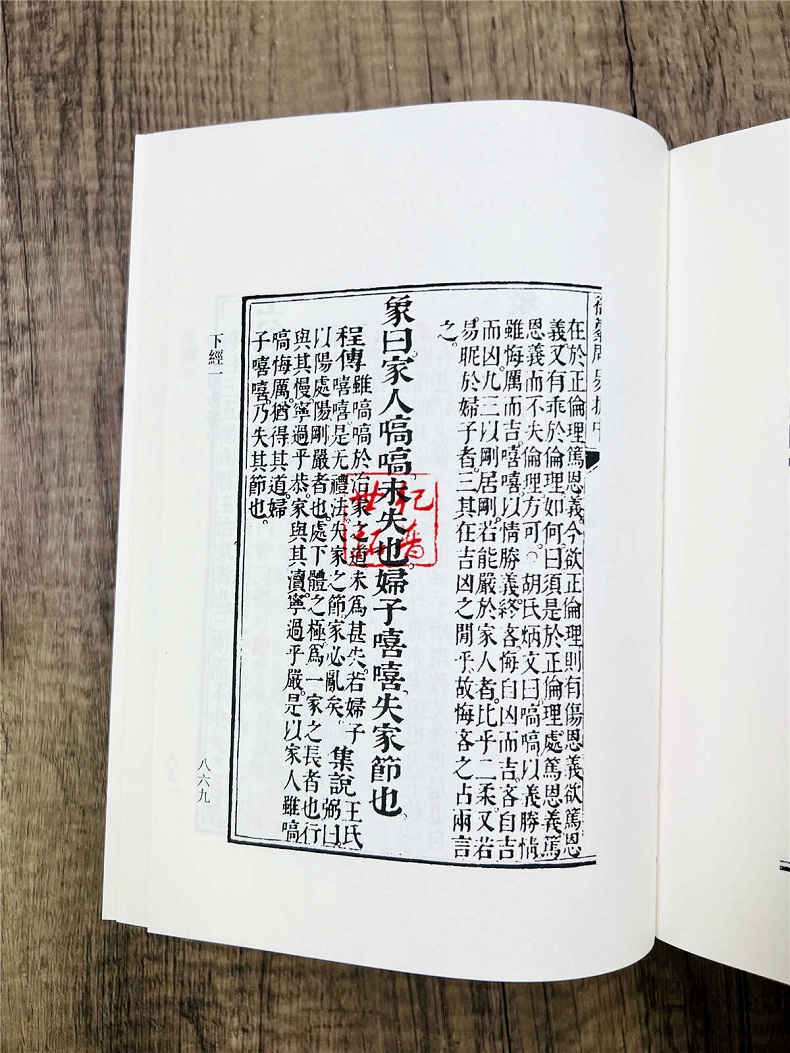 御纂周易折中
在於正倫理篤恩義。今欲正倫理則有傷恩義欲篤恩
義又有乖於倫理如何曰須是於正倫理處篤恩義篤
恩義而不失倫理方可。○胡氏炳文曰嗃嗃以義勝情
雖悔厲而吉。嘻嘻以情勝義終吝悔自凶而吉吝自吉
而凶。九三以剛居剛。若能嚴於家人者。比乎二柔又若
易昵於婦子者。三其在吉凶之閒乎。故悔吝之占兩言
之。
象曰。家人嗃嗃。未失也。婦子嘻嘻。失家節也。
程傳 雖嗃嗃於治家之道未爲甚失。若婦子
嘻嘻是无禮法。失家之節家必亂矣。 集說 王氏弼曰。
以陽處陽剛嚴者也。處下體之極爲一家之長者也。行
與其慢。寧過乎恭。家與其瀆。寧過乎嚴。是以家人雖嗃
嗃悔厲。猶得其道。婦
子嘻嘻。乃失其節也。
下經一
八六九